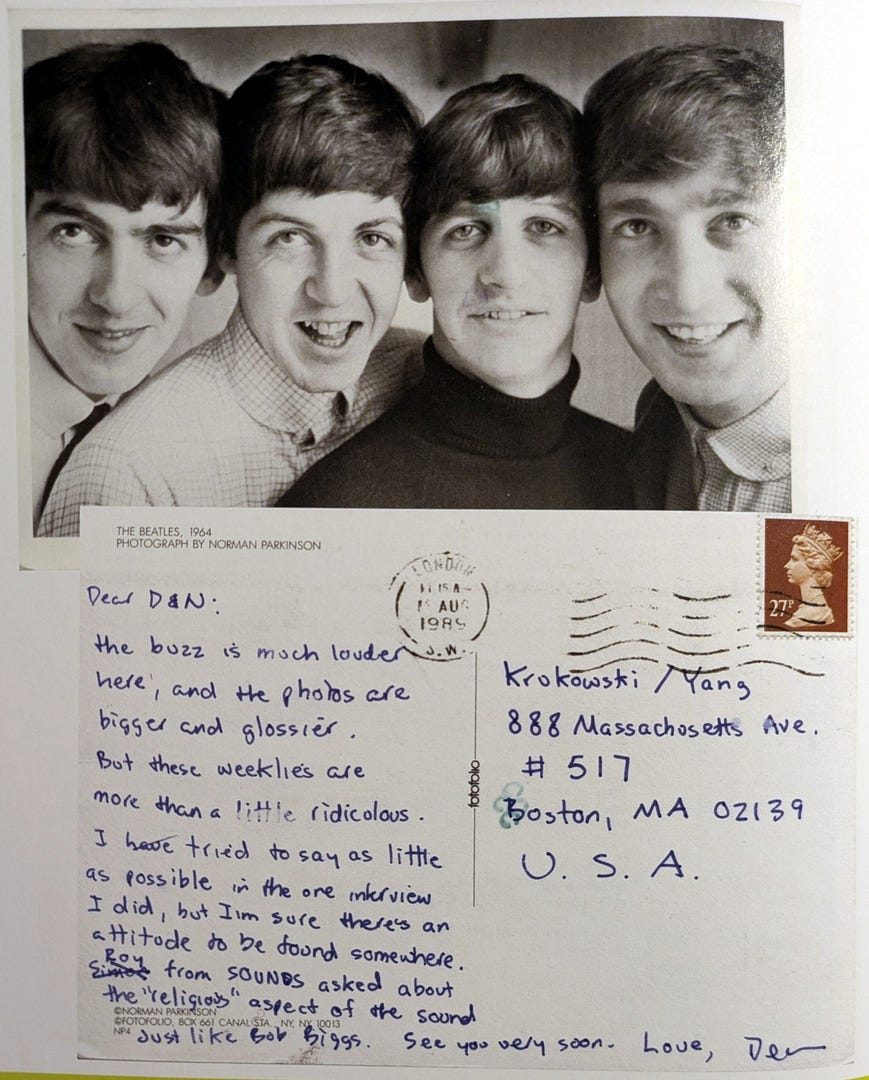 THE BEATLES, 1964
PHOTOGRAPH BY NORMAN PARKINSON
LONDON
AUG
1989
S.W.
27P
Dear D&N:
the buzz is much louder
here, and the photos are
bigger and glossier.
But these weeklies are
more than a little ridicolous.
I have tried to say as little
as possible in the one interview
I did, but I'm sure there's an
attitude to be found somewhere.
Roy
Simon from SOUNDS asked about
the "religious" aspect of the sound
Just like Bob Biggs. See you very soon. Love, Dean
©NORMAN PARKINSON
©FOTOFOLIO, BOX 661 CANAL STA., NY, NY 10013
NP4
fotofolio
Krukowski / Yang
888 Massachusetts Ave.
# 517
Boston, MA 02139
U. S. A.